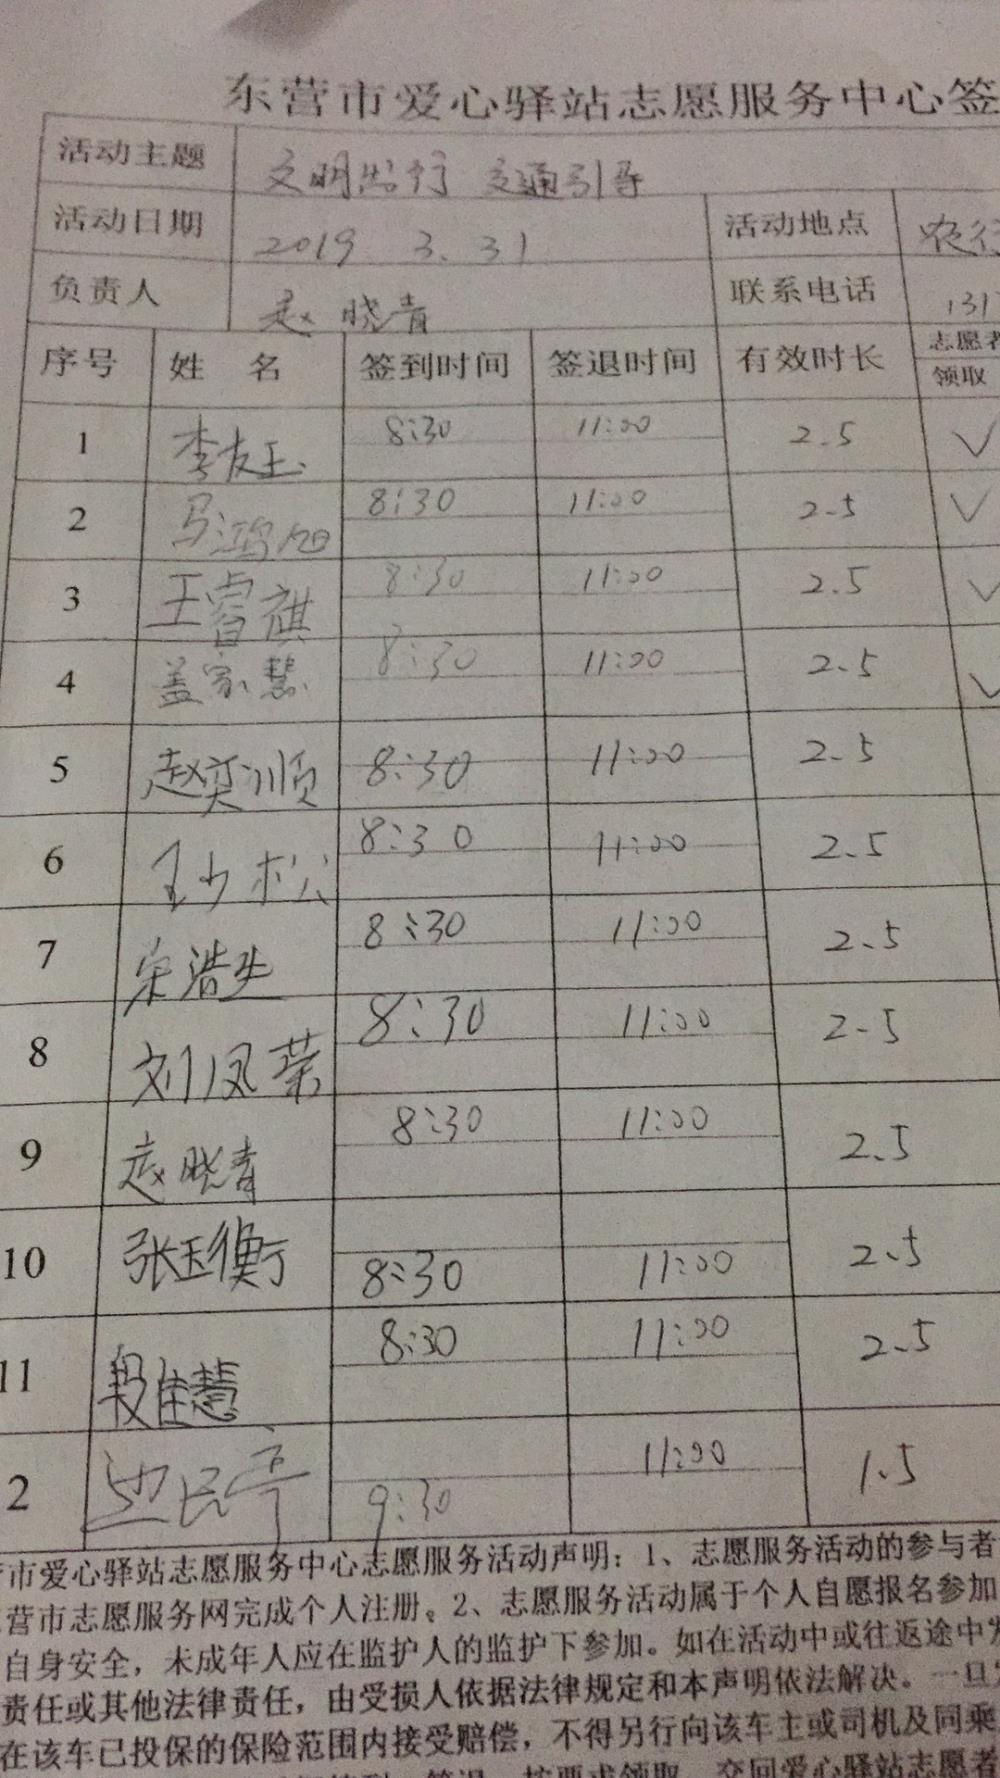 东营市爱心驿站志愿服务中心签
活动主题 文明出行 交通引导
活动日期 2019 3.31 活动地点 农行
负责人 赵晓青 联系电话 131
序号 姓 名 签到时间 签退时间 有效时长 志愿者
领取
1 李友玉 8:30 11:00 2.5 √
2 马鸿旭 8:30 11:00 2.5 √
3 王睿祺 8:30 11:00 2.5 √
4 盖家慧 8:30 11:00 2.5 √
5 赵奕顺 8:30 11:00 2.5
6 8:30 11:00 2.5
7 宋浩生 8:30 11:00 2.5
8 刘凤荣 8:30 11:00 2.5
9 赵晓青 8:30 11:00 2.5
10 张玉衡 8:30 11:00 2.5
11 段佳慧 8:30 11:00 2.5
2 9:30 11:00 1.5
市爱心驿站志愿服务中心志愿服务活动声明：1、志愿服务活动的参与者
营市志愿服务网完成个人注册。2、志愿服务活动属于个人自愿报名参加
自身安全，未成年人应在监护人的监护下参加。如在活动中或往返途中
责任或其他法律责任，由受损人依据法律规定和本声明依法解决。一旦
在该车已投保的保险范围内接受赔偿，不得另行向该车主或司机及同乘
签到、签退，按要求领取、交回爱心驿站志愿者